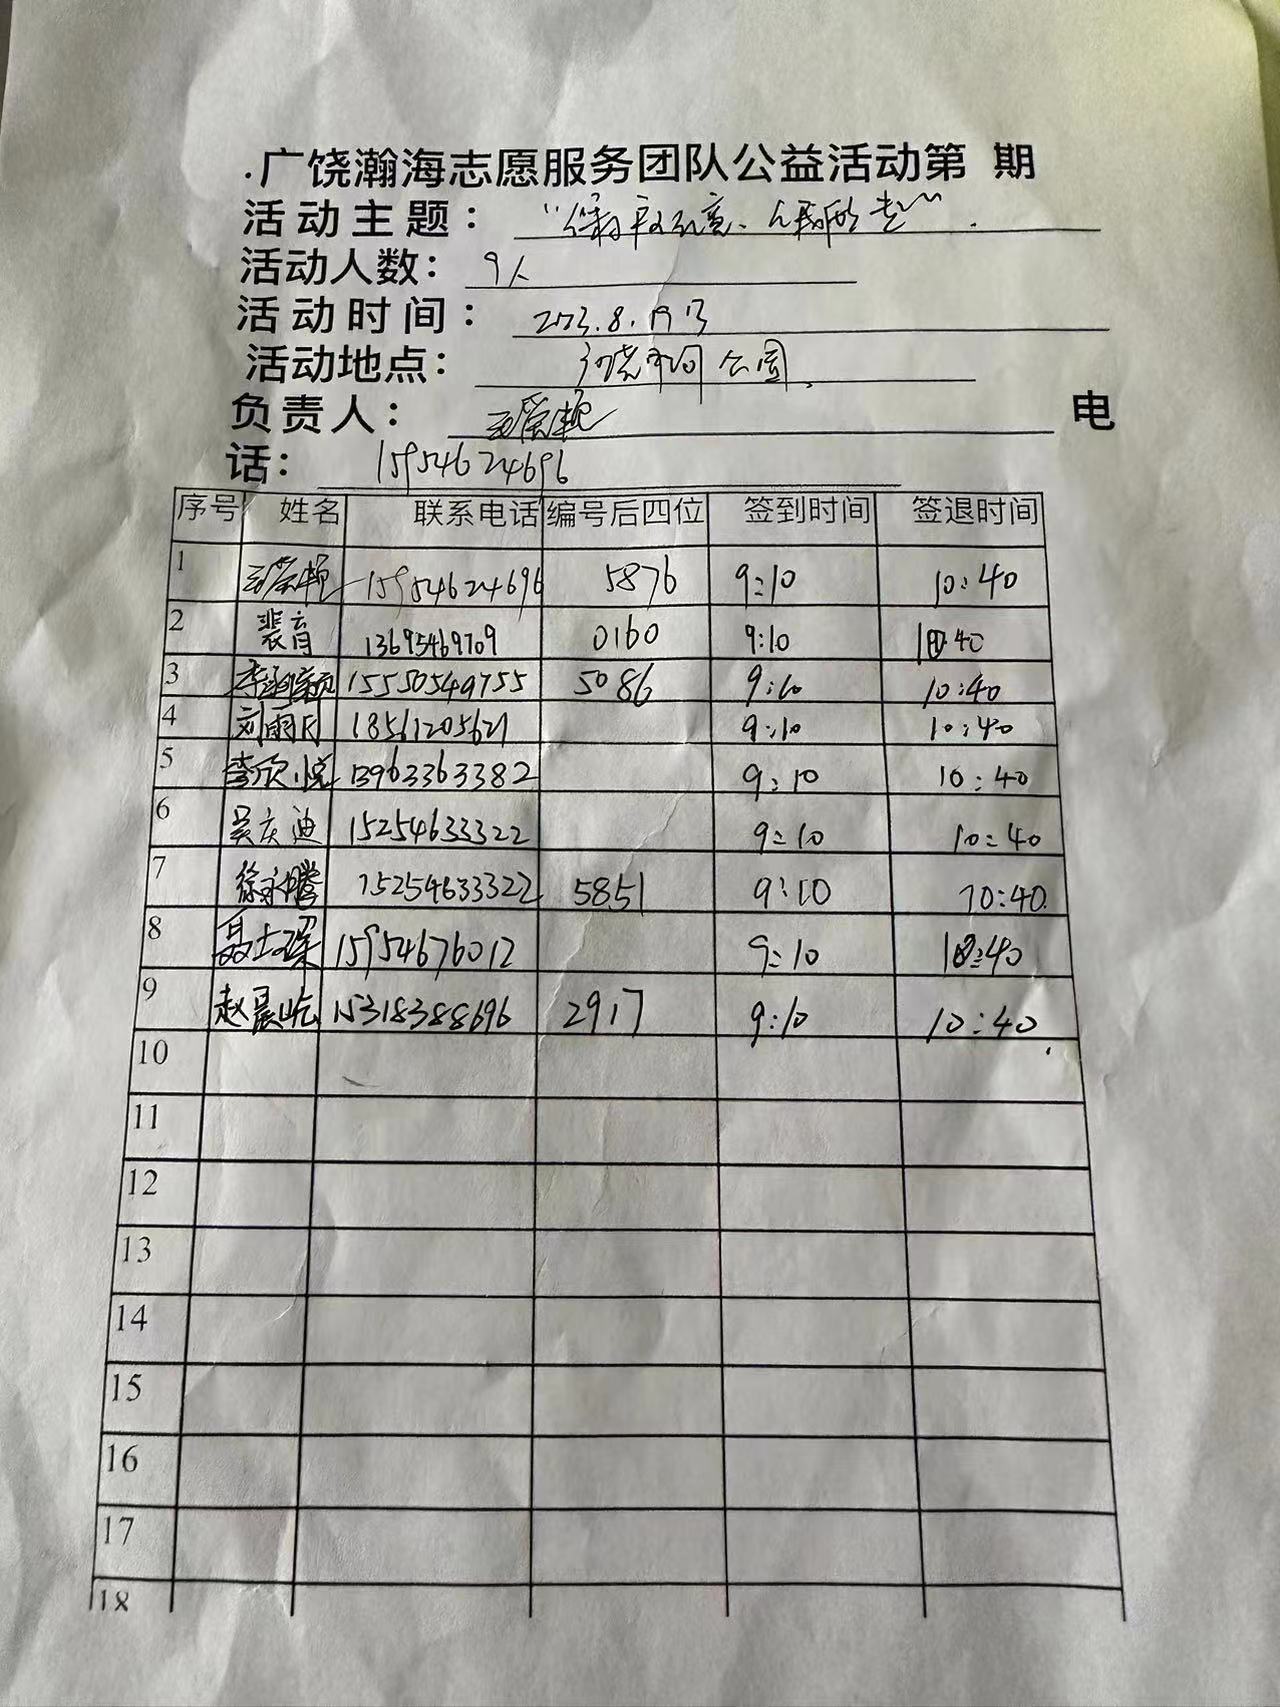 .广饶瀚海志愿服务团队公益活动第 期
活动主题：
活动人数：9人
活动时间：2023.8.19日
活动地点： 公园
负责人： 电
话：15954624696
序号 姓名 联系电话 编号后四位 签到时间 签退时间
1 15954624696 5876 9:10 10:40
2 裴育 13695469709 0160 9:10 10:40
3 15550549755 5086 9:10 10:40
4 刘雨 18561205621 9:10 10:40
5 李欣悦 13963363382 9:10 10:40
6 吴庆迪 15254633322 9:10 10:40
7 徐永腾 15254633322 5851 9:10 10:40
8 聂士琛 15954676012 9:10 10:40
9 赵晨屹 15318388696 2917 9:10 10:40
10
11
12
13
14
15
16
17
18